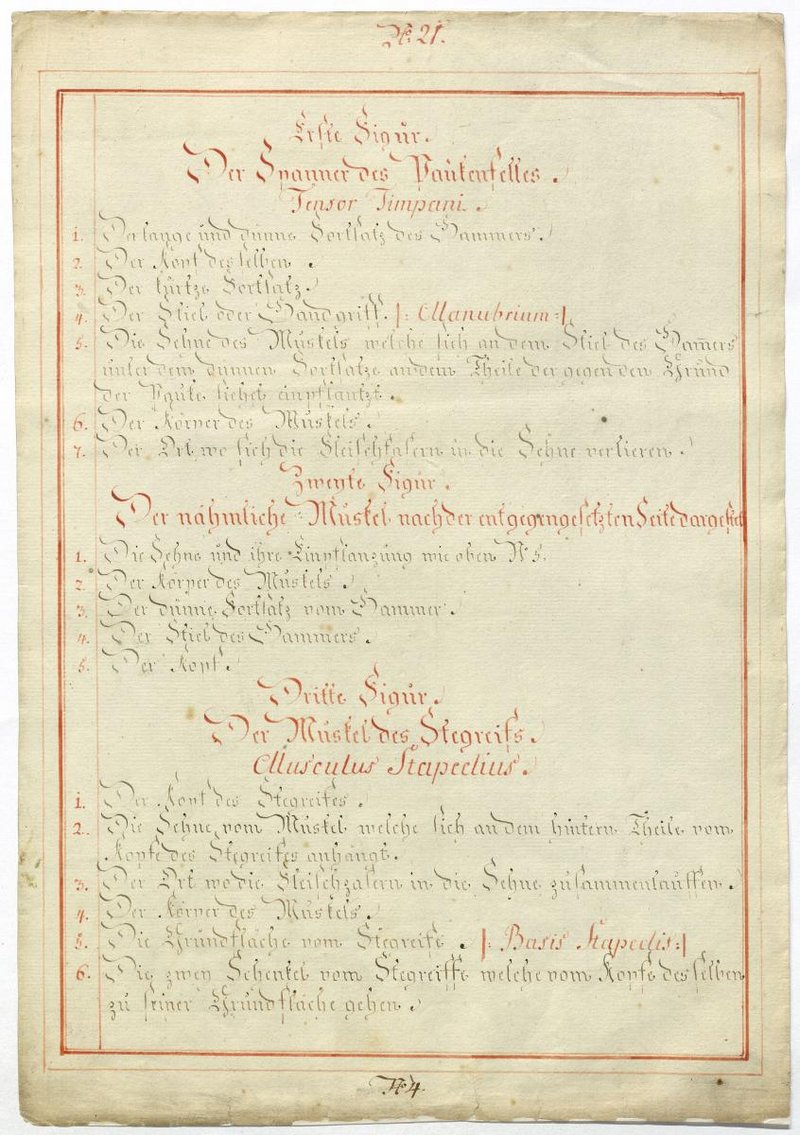 N: 21.
Erste Figur.
Der Spanner des Paukenfelles.
Tensor Timpani.
1. Der lange und dünne Fortsatz des Hammers.
2. Der Kopf desselben.
3. Der kurtze Fortsatz.
4. Der Stiel oder Handgriff. |: Manubrium :|
5. Die Sehne des Muskels welche sich an dem Stiel des Ham̄ers
unter dem dünnen Fortsatze an dem Theile der gegen den Grund
der Pauke siehet einpflantzt.
6. Der Körper des Muskels.
7. Der Ort wo sich die Fleischfasern in die Sehne verlieren.
Zweyte Figur.
Der nähmliche Muskel nach der entgegengesetzten Seite dargestelt
1. Die Sehne und ihre Einpflanzung wie oben N 5.
2. Der Körper des Muskels.
3. Der dünne Fortsatz vom Hammer.
4. Der Stiel des Hammers.
5. Der Kopf.
Dritte Figur.
Der Muskel des Stegreifs.
Musculus Stapedius.
1. Der Kopf des Stegreifes.
2. Die Sehne vom Muskel welche sich an dem hintern Theile vom
Kopfe des Stegreifes anhängt.
3. Der Ort wo die Fleischzasern in die Sehne zusammenlauffen.
4. Der Körper des Muskels.
5. Die Grundfläche vom Stegreife. |: Basis Stapedis :|
6. Die zwey Schenkel vom Stegreiffe welche vom Kopfe desselben
zu seiner Grundfläche gehen.
N: 4.